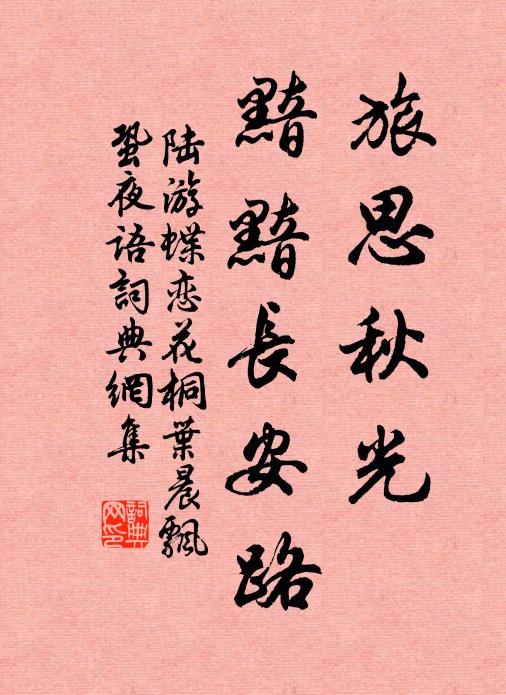 旅思秋光
黯黯長安路
陆游蝶恋花桐葉晨飄
蛩夜语詞典網集
詞典
网印